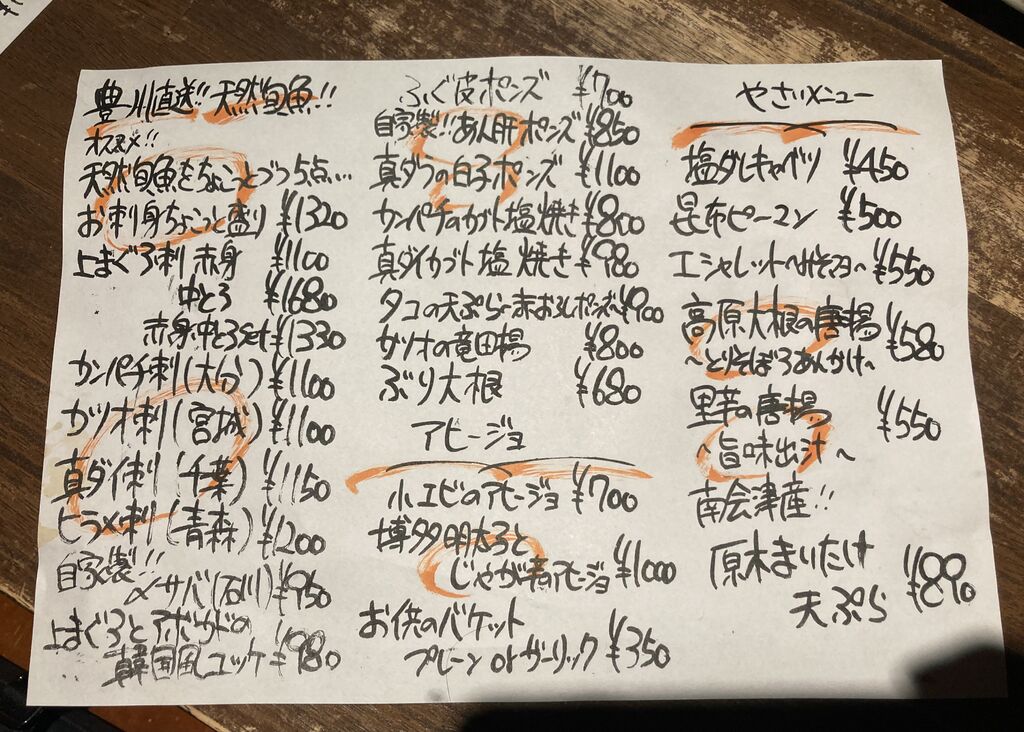 豊川直送!! 天然旬魚!!
オススメ!!
天然旬魚をちょこっとづつ5点...
お刺身ちょこっと盛り ¥1320
上まぐろ刺 赤身 ¥1100
中とろ ¥1680
赤身中とろ ¥1330
カンパチ刺(大分) ¥1100
カツオ刺(宮城) ¥1100
真ダイ刺(千葉) ¥1150
ヒラメ刺(青森) ¥1200
自家製!!
〆サバ(石川) ¥950
上まぐろとアボカドの
韓国風ユッケ ¥980
ふぐ皮ポンズ ¥700
自家製!!あん肝ポンズ ¥850
真ダラの白子ポンズ ¥1100
カンパチのカブト塩焼き ¥800
真ダイカブト塩焼き ¥980
タコの天ぷら 赤おろしポンズ ¥900
カツオの竜田揚 ¥800
ぶり大根 ¥680
アヒージョ
小エビのアヒージョ ¥700
博多明太子と
じゃが芋アヒージョ ¥1000
お供のバケット
プレーンorガーリック ¥350
やさいメニュー
塩ダレキャベツ ¥450
昆布ピーマン ¥500
エシャレット〜みそマヨ〜 ¥550
高原大根の唐揚 ¥580
〜とりそぼろあんかけ〜
里芋の唐揚 ¥550
〜旨味出汁〜
南会津産!!
原木まいたけ
天ぷら ¥890